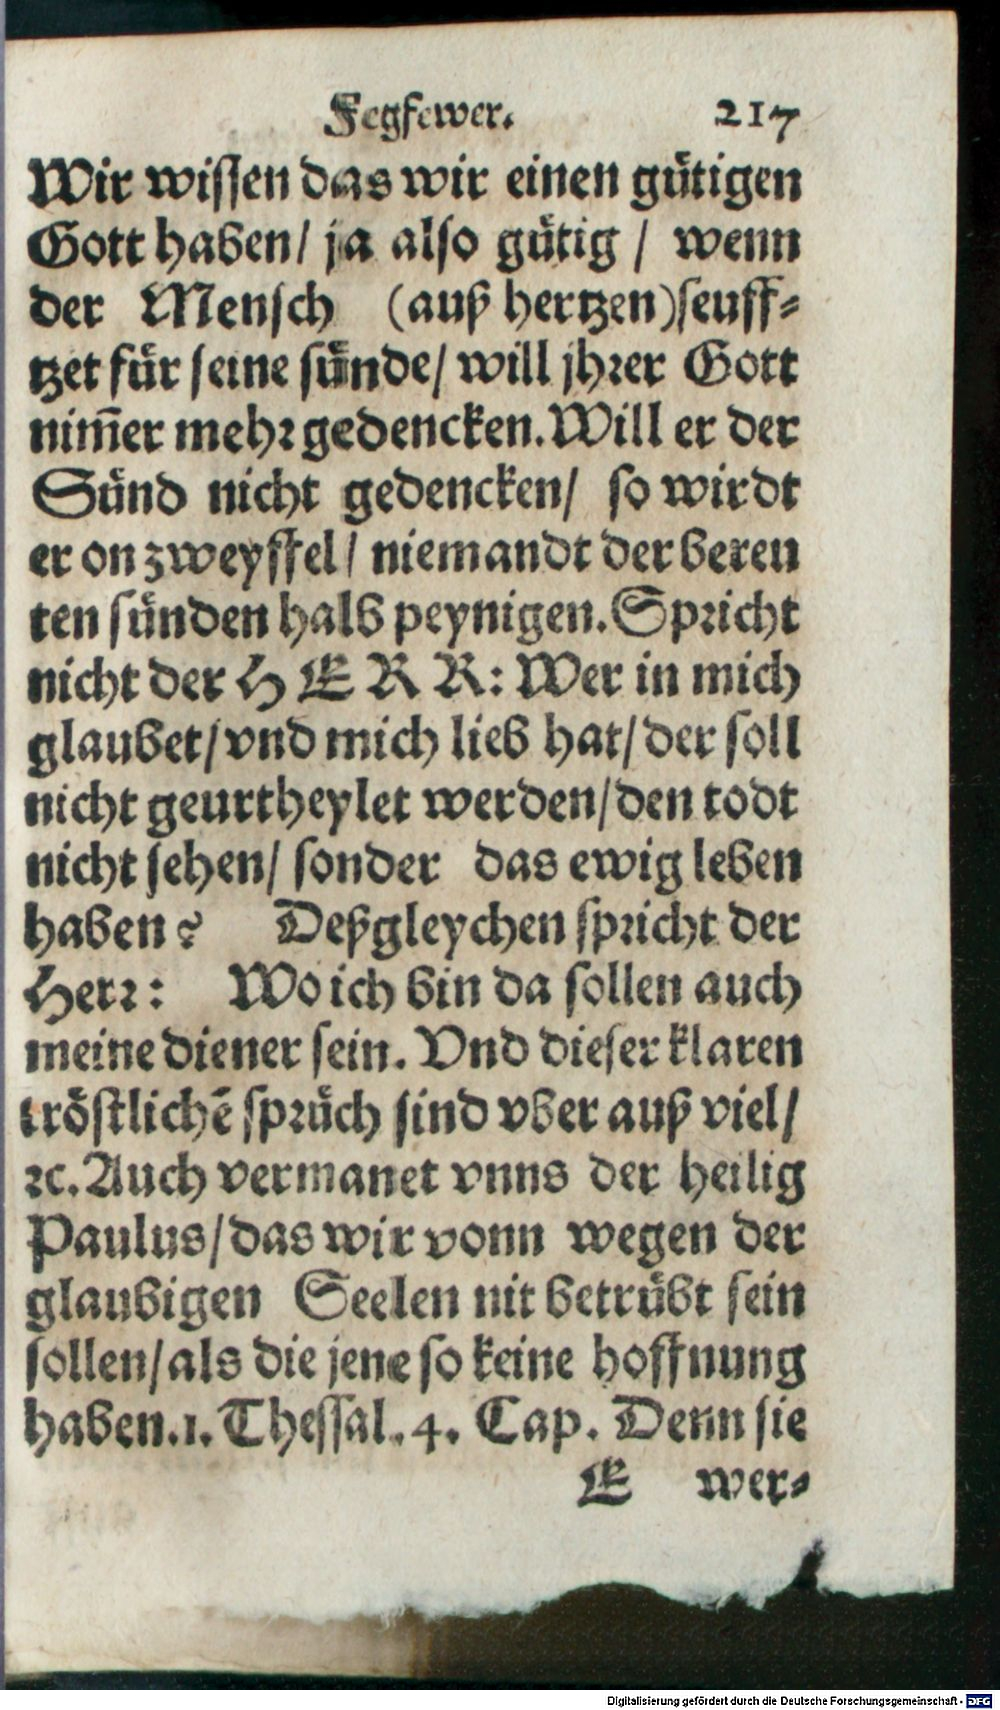 Fegfewer. 217
Wir wissen das wir einen gütigen
Gott haben/ ja also gütig / wenn
der Mensch (auß hertzen) seuff-
tzet für seine sünde/ will jhrer Gott
nim̄er mehr gedencken. Will er der
Sünd nicht gedencken/ so wirdt
er on zweyffel/ niemandt der bereu
ten sünden halb peynigen. Spricht
nicht der HERR: Wer in mich
glaubet/ vnd mich lieb hat/ der soll
nicht geurtheylet werden/ den todt
nicht sehen/ sonder das ewig leben
haben? Deßgleychen spricht der
Herr: Wo ich bin da sollen auch
meine diener sein. Vnd dieser klaren
tröstlichē sprüch sind vber auß viel/
ꝛc. Auch vermanet vnns der heilig
Paulus/ das wir vonn wegen der
glaubigen Seelen nit betrübt sein
sollen/ als die jene so keine hoffnung
haben. 1. Thessal. 4. Cap. Denn sie
E wer-
Digitalisierung gefördert durch die Deutsche Forschungsgemeinschaft - DFG